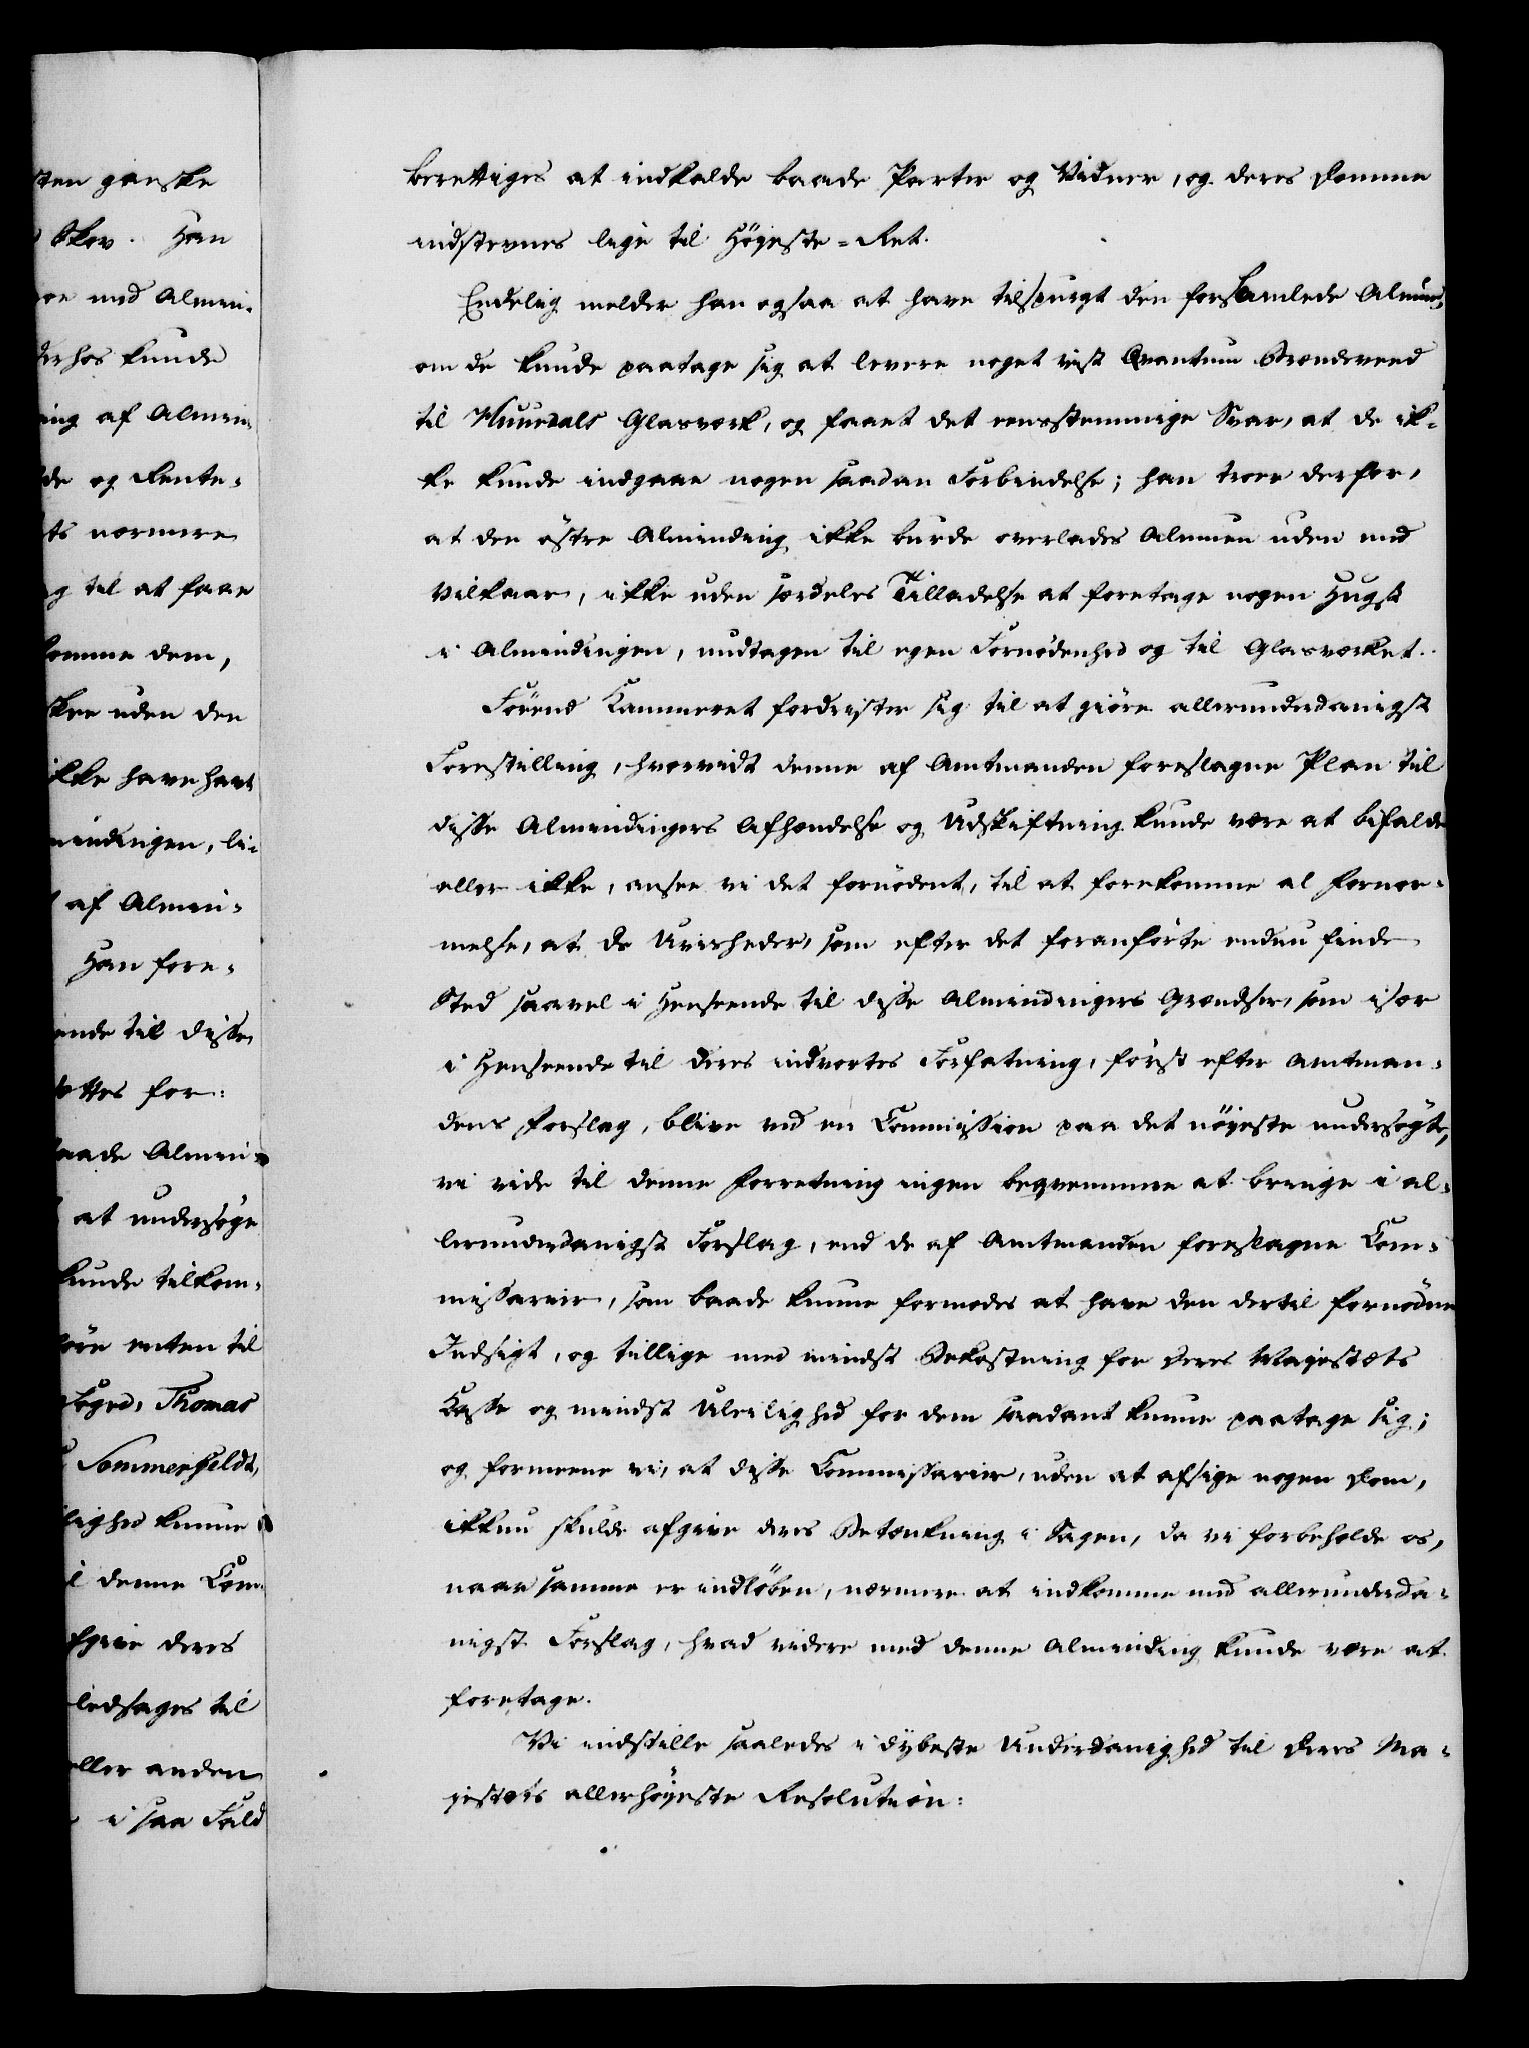 sten ganske
Skov. Han
med Almin-
derhos kunde
ning af Almin-
de og Rente-
ts nærmere
g til at faae
komme dem,
skee uden den
ikke have havt
mindingen, li-
af Almin-
Han fore-
ende til disse
ettes for-
baade Almin-
at undersøge
kunde tilkom-
øre enten til
Foged, Thomas
Sommerfeldt,
lighed kunne
l denne Com-
fgive deres
ledsages til
eller anden
i saa Fald
berettiges at indkalde baade Parter og Vidner, og deres Domme
indstevnes lige til Høyeste-Ret.
Endelig melder han ogsaa at have tilspurgt den forsamlede Almue,
om de kunde paatage sig at levere noget vist Qvantum Brændeveed
til Hurdals Glasværk, og faaet det eensstemmige Svar, at de ik-
ke kunde indgaae nogen saadan Forbindelse; han troer derfor,
at den östre Alminding ikke burde overlades Almuen uden med
Vilkaar, ikke uden særdeles Tilladelse at foretage nogen Hugst
i Almindingen, undtagen til egen Fornødenhed og til Glasværket.
Førend Kammeret fordrister sig til at giöre allerunderdanigst
Forestilling, hvorvidt denne af Amtmanden foreslagne Plan til
disse Almindingers Afhændelse og Udskiftning kunde være at bifalde
eller ikke, ansee vi det fornödent, til at forekomme al Fornær-
melse, at de Uvisheder, som efter det foranförte endnu finde
Sted saavel i Henseende til disse Almindingers Grændser, som især
i Henseende til deres indvortes Forfatning, först efter Amtman-
dens Forslag, blive ved en Commission paa det nöyeste undersögte,
vi vide til denne Forretning ingen beqvemmere at bringe i al-
lerunderdanigst Forslag, end de af Amtmanden foreslagne Com-
missairer, som baade kunne formodes at have den dertil fornödne
Indsigt, og tillige med mindst Bekostning for Deres Majestæts
Kasse og mindst Uleilighed for dem saadant kunne paatage sig;
og formeene vi, at disse Commissairer, uden at afsige nogen Dom,
ikkun skulde afgive deres Betænkning i Sagen, da vi forbeholde os,
naar samme er indlöben, nærmere at indkomme med allerunderda-
nigst Forslag, hvad videre med denne Alminding kunde være at
foretage.
Vi indstille saaledes i dybeste Underdanighed til Deres Ma-
jestæts allerhöyeste Resolution: